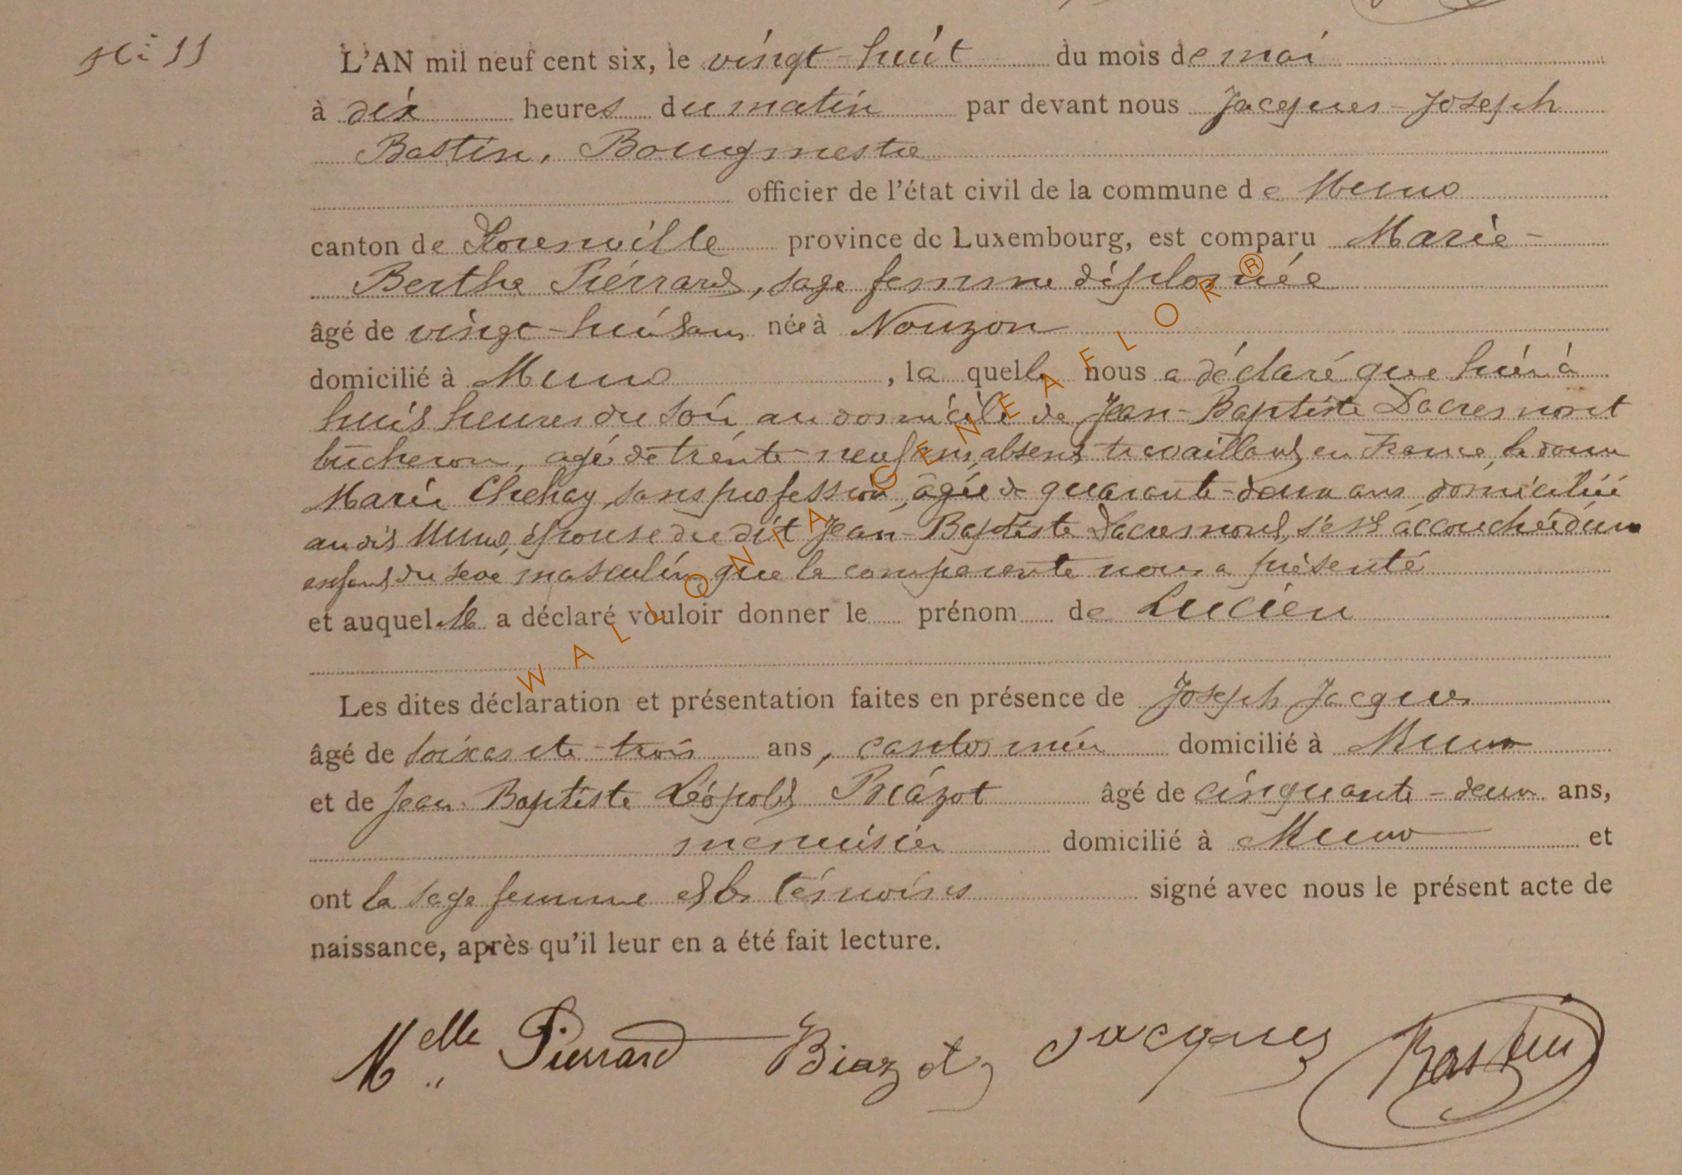 N° 11
L'AN mil neuf cent six, le vingt-huit du mois de mai
à dix heures du matin par devant nous Jacques-Joseph
Bastin, Bourgmestre
officier de l'état civil de la commune de Muno
canton de Florenville province de Luxembourg, est comparu Marie-
Berthe Pierrard, sage femme diplomée
âgé de vingt-huit ans née à Nouzon
domicilié à Muno, la quelle nous a déclaré que hier à
huit heures du soir au domicile de Jean-Baptiste Lacremont
bûcheron, agé de trente-neuf ans, absent travaillant en France, la dame
Marie Chehay, sans profession, âgée de quarante-deux ans, domiciliée
au dit Muno, épouse du dit Jean-Baptiste Lacremont, s'est accouchée d'un
enfant du sexe masculin que la comparante nous a présenté
et auquel elle a déclaré vouloir donner le prénom de Lucien
Les dites déclaration et présentation faites en présence de Joseph Jacques
âgé de soixante-trois ans, cantonnier domicilié à Muno
et de Jean-Baptiste Léopold Biazot âgé de cinquante-deux ans,
menuisier domicilié à Muno et
ont la sage femme et les témoins signé avec nous le présent acte de
naissance, après qu'il leur en a été fait lecture.
Melle Pierrard Biazot Jacques Bastin
WALLONIA GENEA FLOR ®